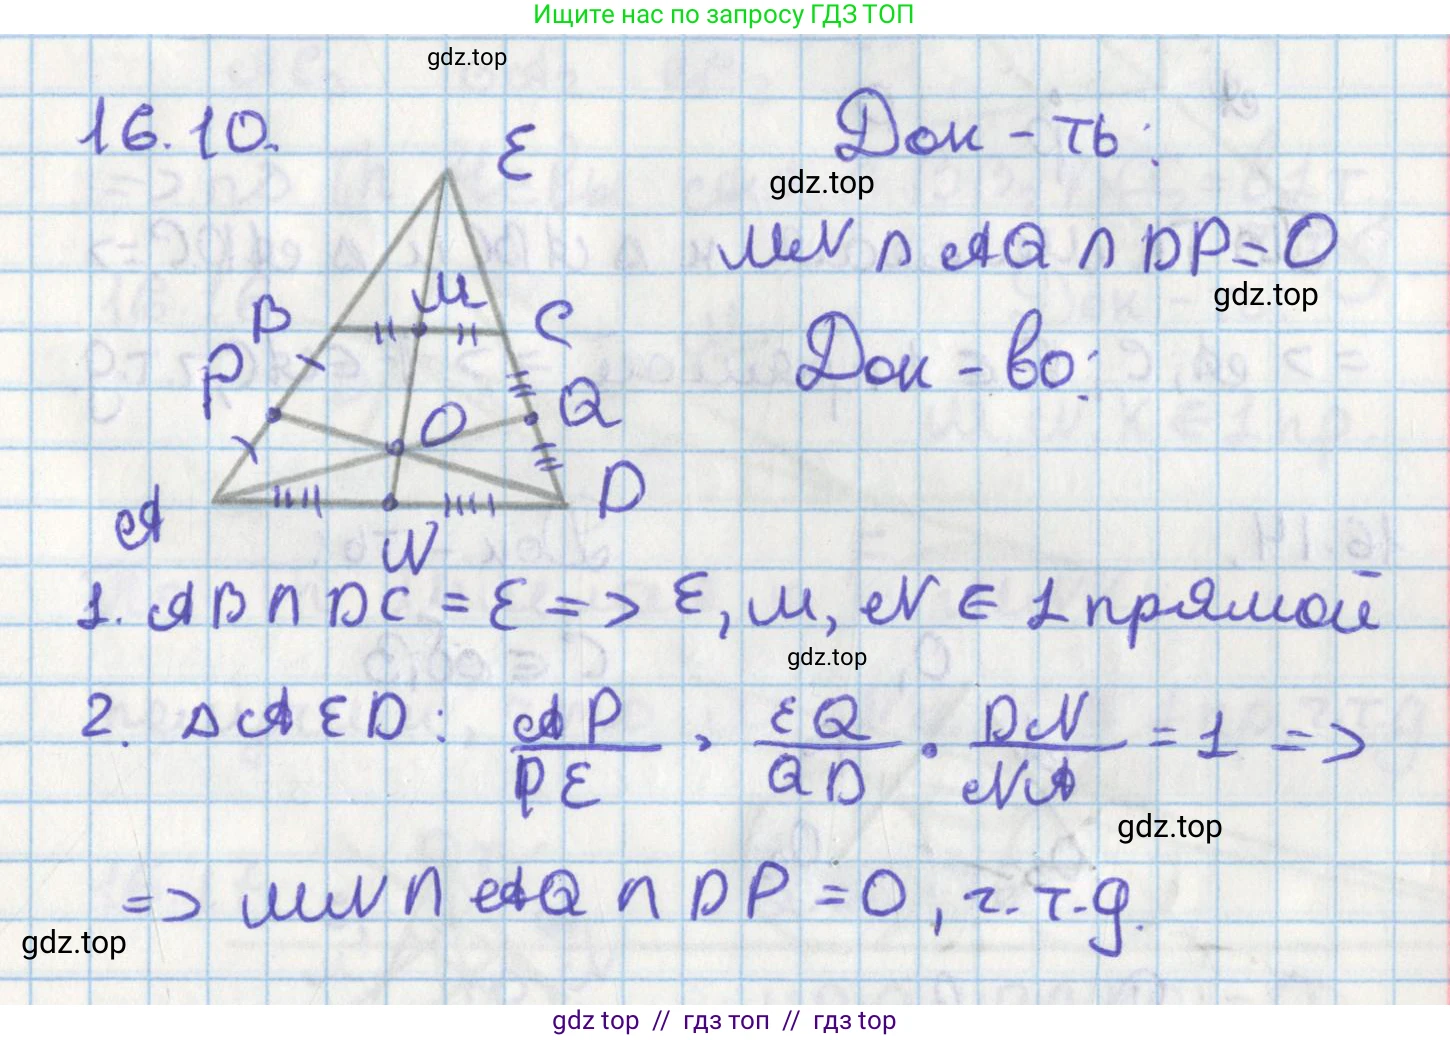 Ищите нас по запросу ГДЗ ТОП
gdz.top
16.10.
Док-ть:
gdz.top
MN ∩ AQ ∩ DP = O
gdz.top
Док-во:
E
B
M
C
P
Q
O
A
N
D
1. AB ∩ DC = E => E, M, N ∈ 1 прямой
gdz.top
2. Δ AED: AP/PE · EQ/QD · DN/NA = 1 =>
gdz.top
=> MN ∩ AQ ∩ DP = O, ч.т.д.
gdz.top
gdz top // гдз топ // гдз top